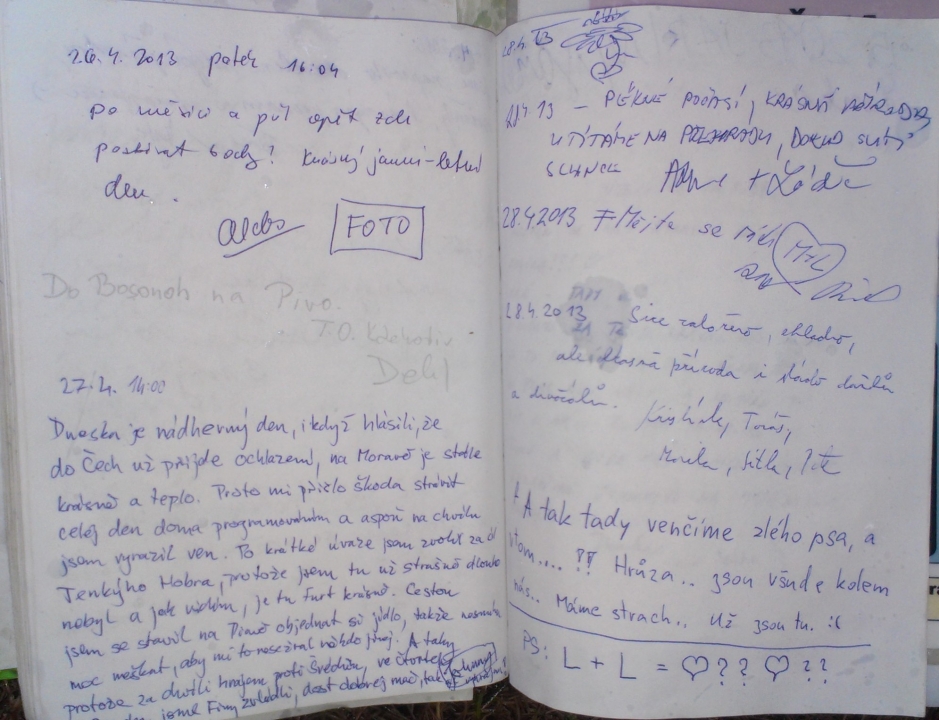 26.4.2013 pátek 16:04
po měsíci a půl opět zde
posbírat body! Krásný jarní-letní
den.
aldos FOTO
Do Bosonoh na Pivo.
T.O.
27.4. 14:00
Dneska je nádherný den, i když hlásili, že
do Čech už přijde ochlazení, na Moravě je stále
krásně a teplo. Proto mi přišlo škoda strávit
celej den doma programováním a aspoň na chvilu
jsem vyrazil ven. Po krátké úvaze jsem zvolil za cíl
Tenkýho Hobra, protože jsem tu už strašně dlouho
nebyl a jak vidím, je tu furt krásně. Cestou
jsem se stavil na Pramě objednat si jídlo, takže nesmím
moc meškat, aby mi to nesežral někdo jiný. A taky
protože za chvíli hrajem proti Švédsku, ve čtvrtek
jsme Finy zvládli, dost dobrej mač, tak
28.4.13
28.4.13 – PĚKNÉ POČASÍ, KRÁSNÁ PŘÍRODA,
UTÍKÁME NA PŘEHRADU, DOKUD SVÍTÍ
SLUNCE + Láďa
28.4.2013 Mějte se rádi M+L
28.4.2013 Sice zataženo, chladno,
ale krásná příroda i stádo daňků
a divočáků.
Tomáš,
Monika, Jitka, Petr
+ A tak tady venčíme zlého psa, a
vtom.... ?! Hrůza.. jsou všude kolem
nás.. Máme strach.. Už jsou tu. :(
PS: L + L = ♡?? ♡??